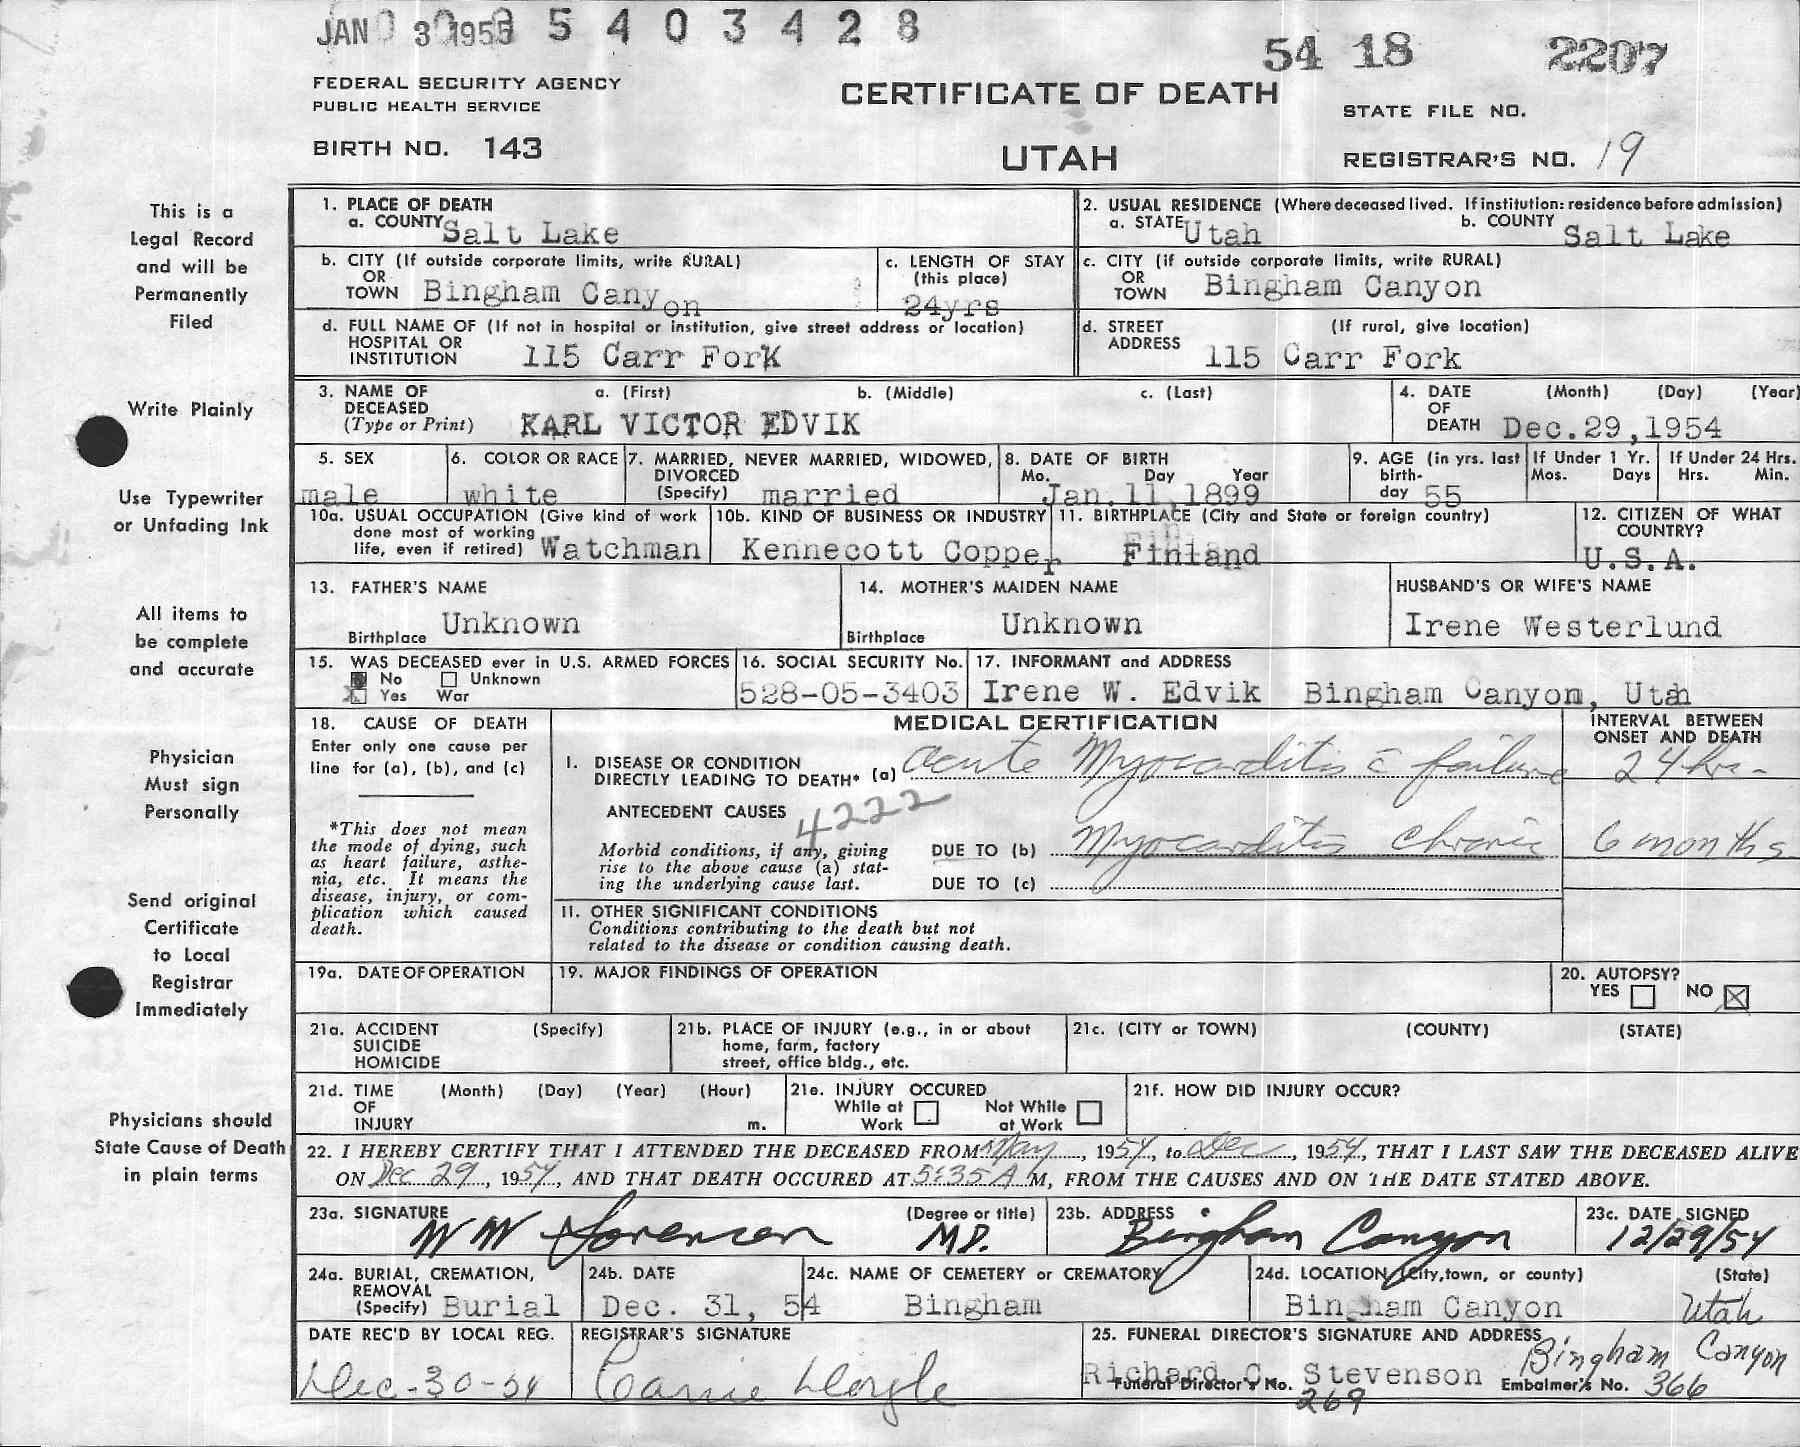 JAN 3 1955 5 4 0 3 4 2 8
54 18 2207
FEDERAL SECURITY AGENCY
PUBLIC HEALTH SERVICE
CERTIFICATE OF DEATH
STATE FILE NO.
BIRTH NO. 143
UTAH
REGISTRAR'S NO. 19
This is a
Legal Record
and will be
Permanently
Filed
Write Plainly
Use Typewriter
or Unfading Ink
All items to
be complete
and accurate
Physician
Must sign
Personally
Send original
Certificate
to Local
Registrar
Immediately
Physicians should
State Cause of Death
in plain terms
1. PLACE OF DEATH
a. COUNTY Salt Lake
2. USUAL RESIDENCE (Where deceased lived. If institution: residence before admission)
a. STATE Utah b. COUNTY Salt Lake
b. CITY (If outside corporate limits, write RURAL)
OR
TOWN Bingham Canyon
c. LENGTH OF STAY
(this place)
24yrs
c. CITY (if outside corporate limits, write RURAL)
OR
TOWN Bingham Canyon
d. FULL NAME OF (If not in hospital or institution, give street address or location)
HOSPITAL OR
INSTITUTION 115 Carr Fork
d. STREET (If rural, give location)
ADDRESS 115 Carr Fork
3. NAME OF a. (First) b. (Middle) c. (Last)
DECEASED
(Type or Print) KARL VICTOR EDVIK
4. DATE (Month) (Day) (Year)
OF
DEATH Dec.29,1954
5. SEX
male
6. COLOR OR RACE
white
7. MARRIED, NEVER MARRIED, WIDOWED,
DIVORCED
(Specify) married
8. DATE OF BIRTH
Mo. Day Year
Jan.11,1899
9. AGE (in yrs. last
birth-
day 55
If Under 1 Yr.
Mos. Days
If Under 24 Hrs.
Hrs. Min.
10a. USUAL OCCUPATION (Give kind of work
done most of working
life, even if retired) Watchman
10b. KIND OF BUSINESS OR INDUSTRY
Kennecott Copper
11. BIRTHPLACE (City and State or foreign country)
Finland
12. CITIZEN OF WHAT
COUNTRY?
U.S.A.
13. FATHER'S NAME
Unknown
Birthplace
14. MOTHER'S MAIDEN NAME
Unknown
Birthplace
HUSBAND'S OR WIFE'S NAME
Irene Westerlund
15. WAS DECEASED ever in U.S. ARMED FORCES
No Unknown
Yes War
16. SOCIAL SECURITY No.
528-05-3403
17. INFORMANT and ADDRESS
Irene W. Edvik Bingham Canyon, Utah
18. CAUSE OF DEATH
Enter only one cause per
line for (a), (b), and (c)
*This does not mean
the mode of dying, such
as heart failure, asthe-
nia, etc. It means the
disease, injury, or com-
plication which caused
death.
MEDICAL CERTIFICATION
INTERVAL BETWEEN
ONSET AND DEATH
I. DISEASE OR CONDITION
DIRECTLY LEADING TO DEATH* (a) Acute Myocarditis c̄ failure 24 hrs-
ANTECEDENT CAUSES 4222
Morbid conditions, if any, giving
rise to the above cause (a) stat-
ing the underlying cause last.
DUE TO (b) Myocarditis chronic 6 months
DUE TO (c)
II. OTHER SIGNIFICANT CONDITIONS
Conditions contributing to the death but not
related to the disease or condition causing death.
19a. DATE OF OPERATION
19. MAJOR FINDINGS OF OPERATION
20. AUTOPSY?
YES NO
21a. ACCIDENT (Specify)
SUICIDE
HOMICIDE
21b. PLACE OF INJURY (e.g., in or about
home, farm, factory
street, office bldg., etc.
21c. (CITY or TOWN) (COUNTY) (STATE)
21d. TIME (Month) (Day) (Year) (Hour)
OF
INJURY m.
21e. INJURY OCCURED
While at Not While
Work at Work
21f. HOW DID INJURY OCCUR?
22. I HEREBY CERTIFY THAT I ATTENDED THE DECEASED FROM May, 1954, to Dec, 1954, THAT I LAST SAW THE DECEASED ALIVE
ON Dec 29, 1954, AND THAT DEATH OCCURED AT 5:35 A M, FROM THE CAUSES AND ON THE DATE STATED ABOVE.
23a. SIGNATURE (Degree or title)
W W Sorensen M.D.
23b. ADDRESS
Bingham Canyon
23c. DATE SIGNED
12/29/54
24a. BURIAL, CREMATION,
REMOVAL
(Specify) Burial
24b. DATE
Dec. 31, 54
24c. NAME OF CEMETERY or CREMATORY
Bingham
24d. LOCATION (City, town, or county) (State)
Bingham Canyon Utah
DATE REC'D BY LOCAL REG.
Dec-30-54
REGISTRAR'S SIGNATURE
Carrie Doyle
25. FUNERAL DIRECTOR'S SIGNATURE AND ADDRESS
Richard C. Stevenson Bingham Canyon
Funeral Director's No. 269 Embalmer's No. 366